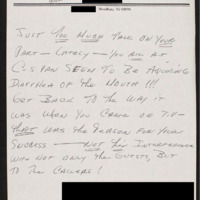 Just Too Much Talk on Your
Part - Lately - You All at
C-Span Seem to Be Acquiring
Diarrhea of the Mouth !!!
Get Back to the Way it
was when You Came on T.V-
That was the Reason for Your
Success - Not the Interference
with not only the Guests, But
To the Callers !